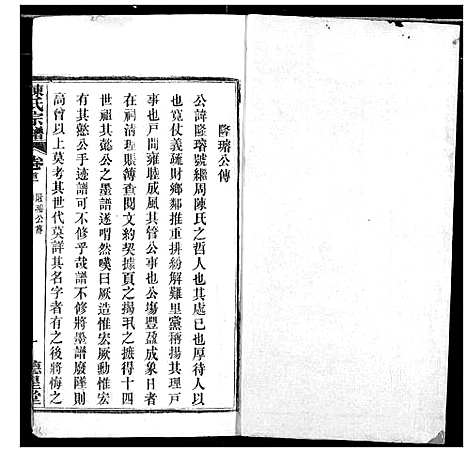 隆瑢公傳
公諱隆瑢號繼周陳氏之哲人也其處已也厚待人以
也寬仗義疏財鄉鄰推重排紛解難里黨稱揚其理戸
事也戸間雍睦成風其管公事也公塲豐盈成象日者
在祠清理賬簿查閱文約契據頁之揚汎之摭得十四
世祖其懿公之墨譜遂喟然嘆曰厥造惟宏厥勳惟宏
有其懿公手迹譜可不修乎哉譜不修將墨譜廢墜則
高曾以上莫考其世代莫詳其名字者有之後將悔之
陳氏宗譜
卷首
隆瑢公傳
一
德星堂